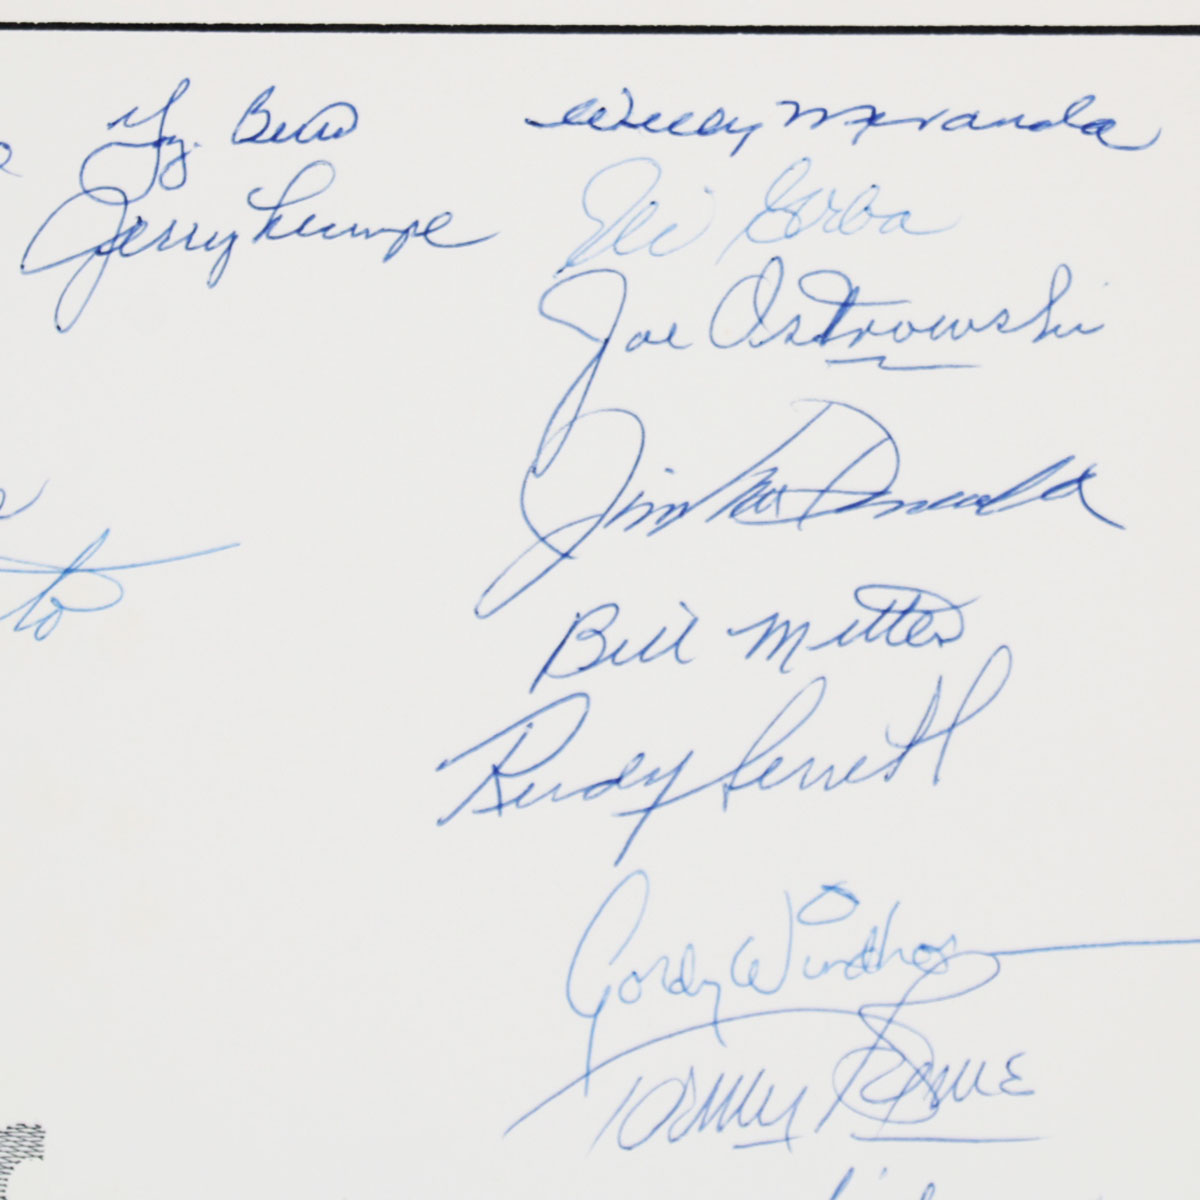 Yogi Berra
Jerry Lumpe
to
Willy Miranda
Eli Grba
Joe Ostrowski
Jim McDonald
Bill Miller
Rudy
Gordy Windhorn
Tommy Byrne